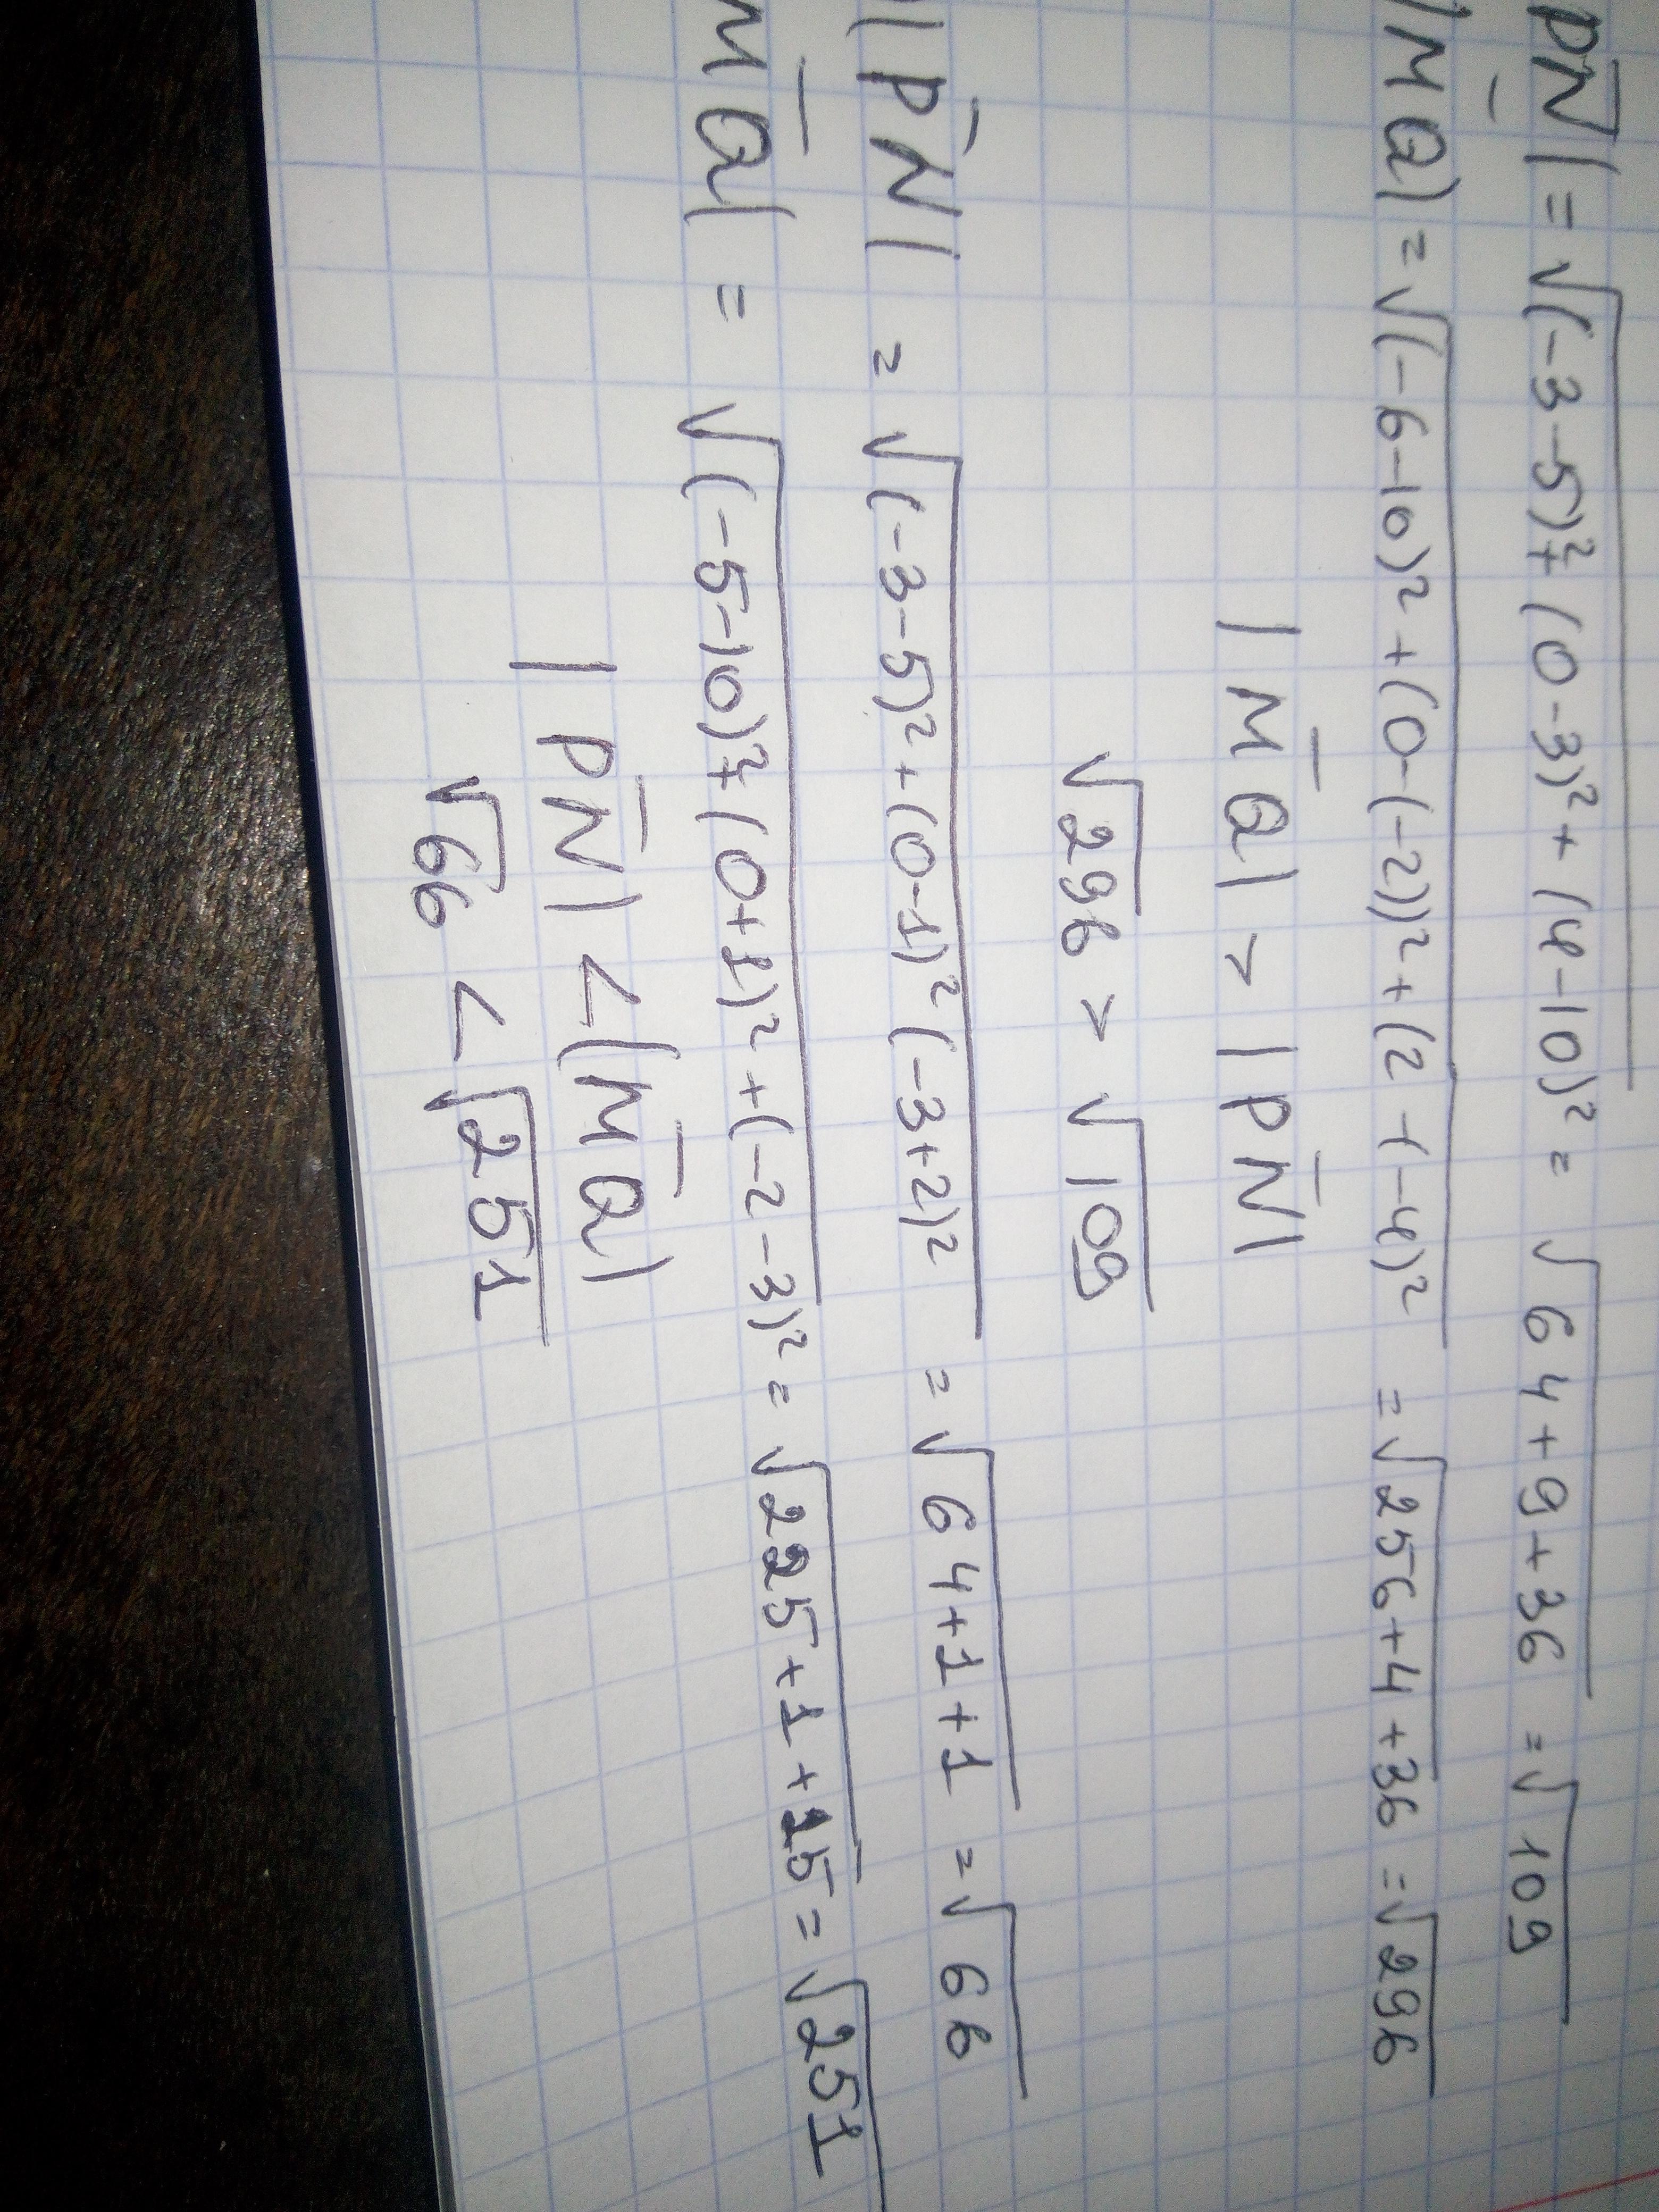 PN| = √(-3-5)²+(0-3)²+(4-10)² = √64+9+36 = √109
|MQ| = √(-6-10)²+(0-(-2))²+(2-(-4)² = √256+4+36 = √296
|MQ| > |PN|
√296 > √109
|PN| = √(-3-5)²+(0-1)²(-3+2)² = √64+1+1 = √66
MQ| = √(-5-10)²+(0+1)²+(-2-3)² = √225+1+25 = √251
|PN| < |MQ|
√66 < √251